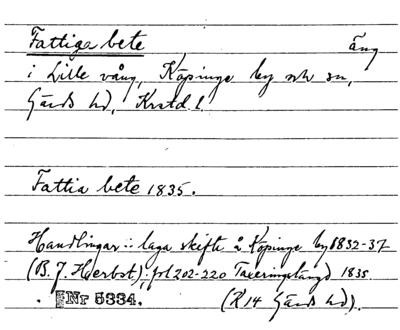 Fattiga bete äng
i Lille vång, Köpinge by och sn,
Gärds hd, Krstd. l.
Fattia bete 1835.
Handlingar :: laga skifte å Köpinge by 1832-37
(B. J. Herbst): fol 202-220 Taxeringslängd 1835
Nr 5334. (R 14 Gärds hd).